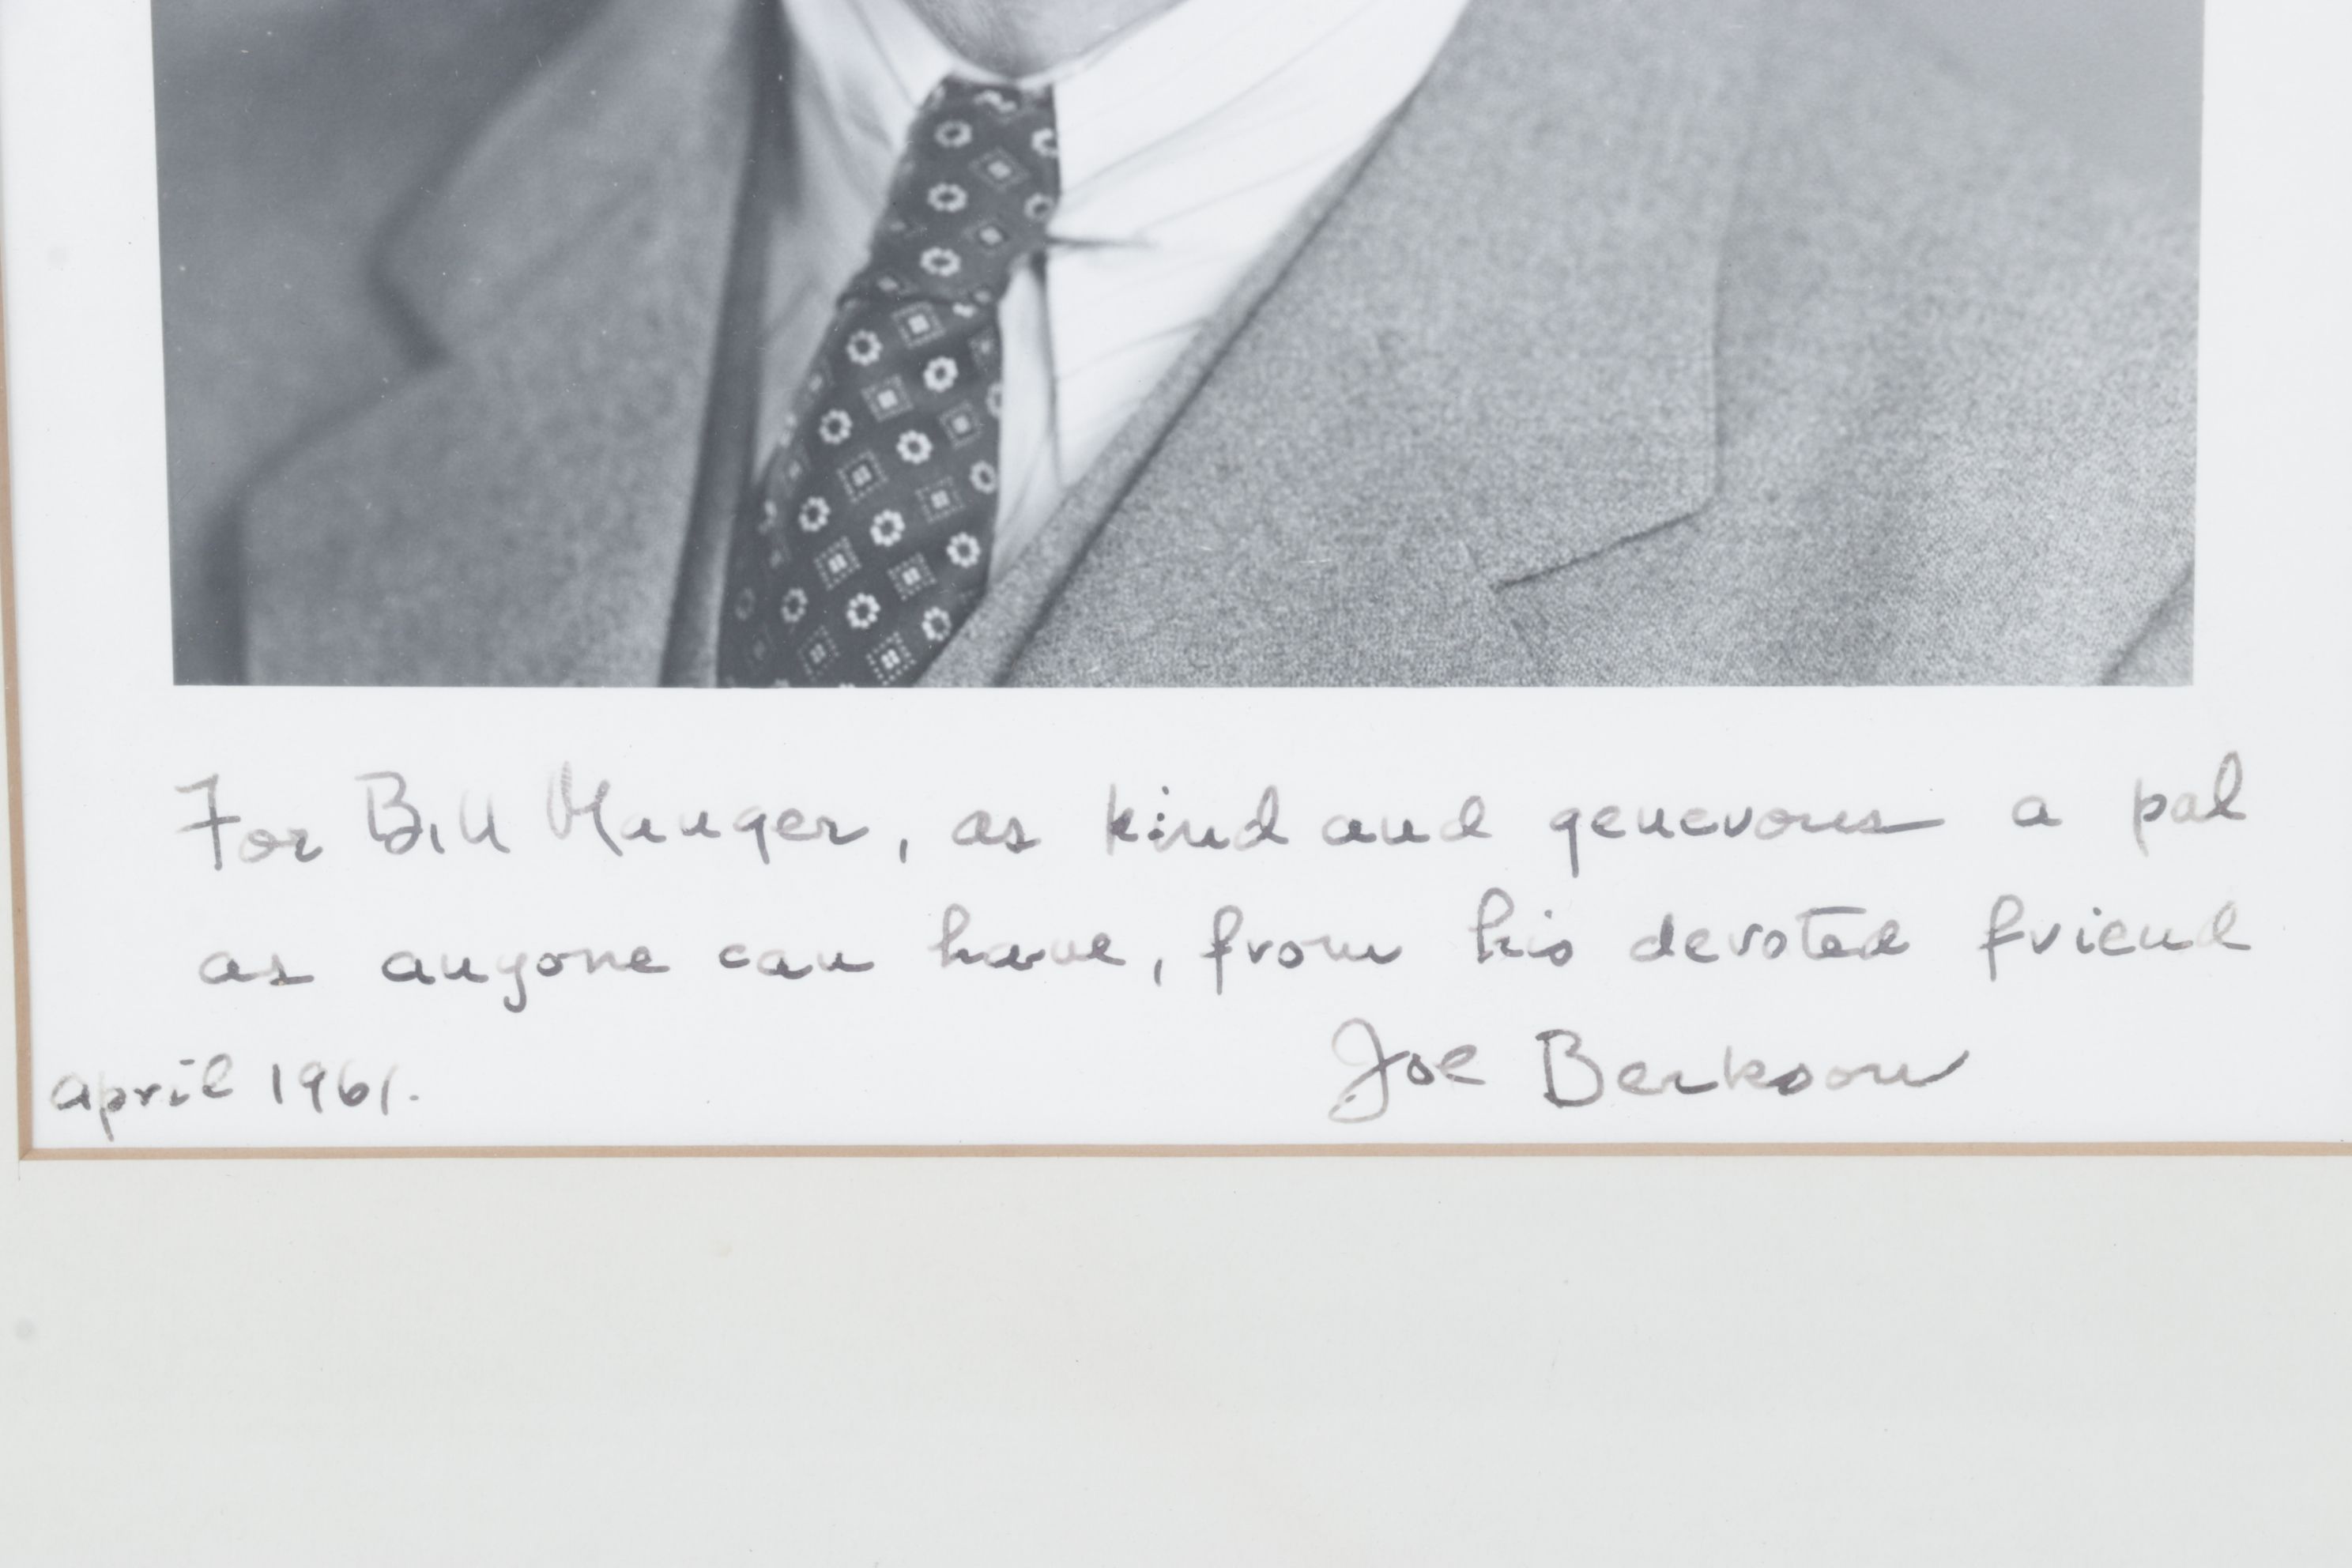 For Bill Mauger, as kind and generous a pal
as anyone can have, from his devoted friend
Joe Berkson
april 1961.